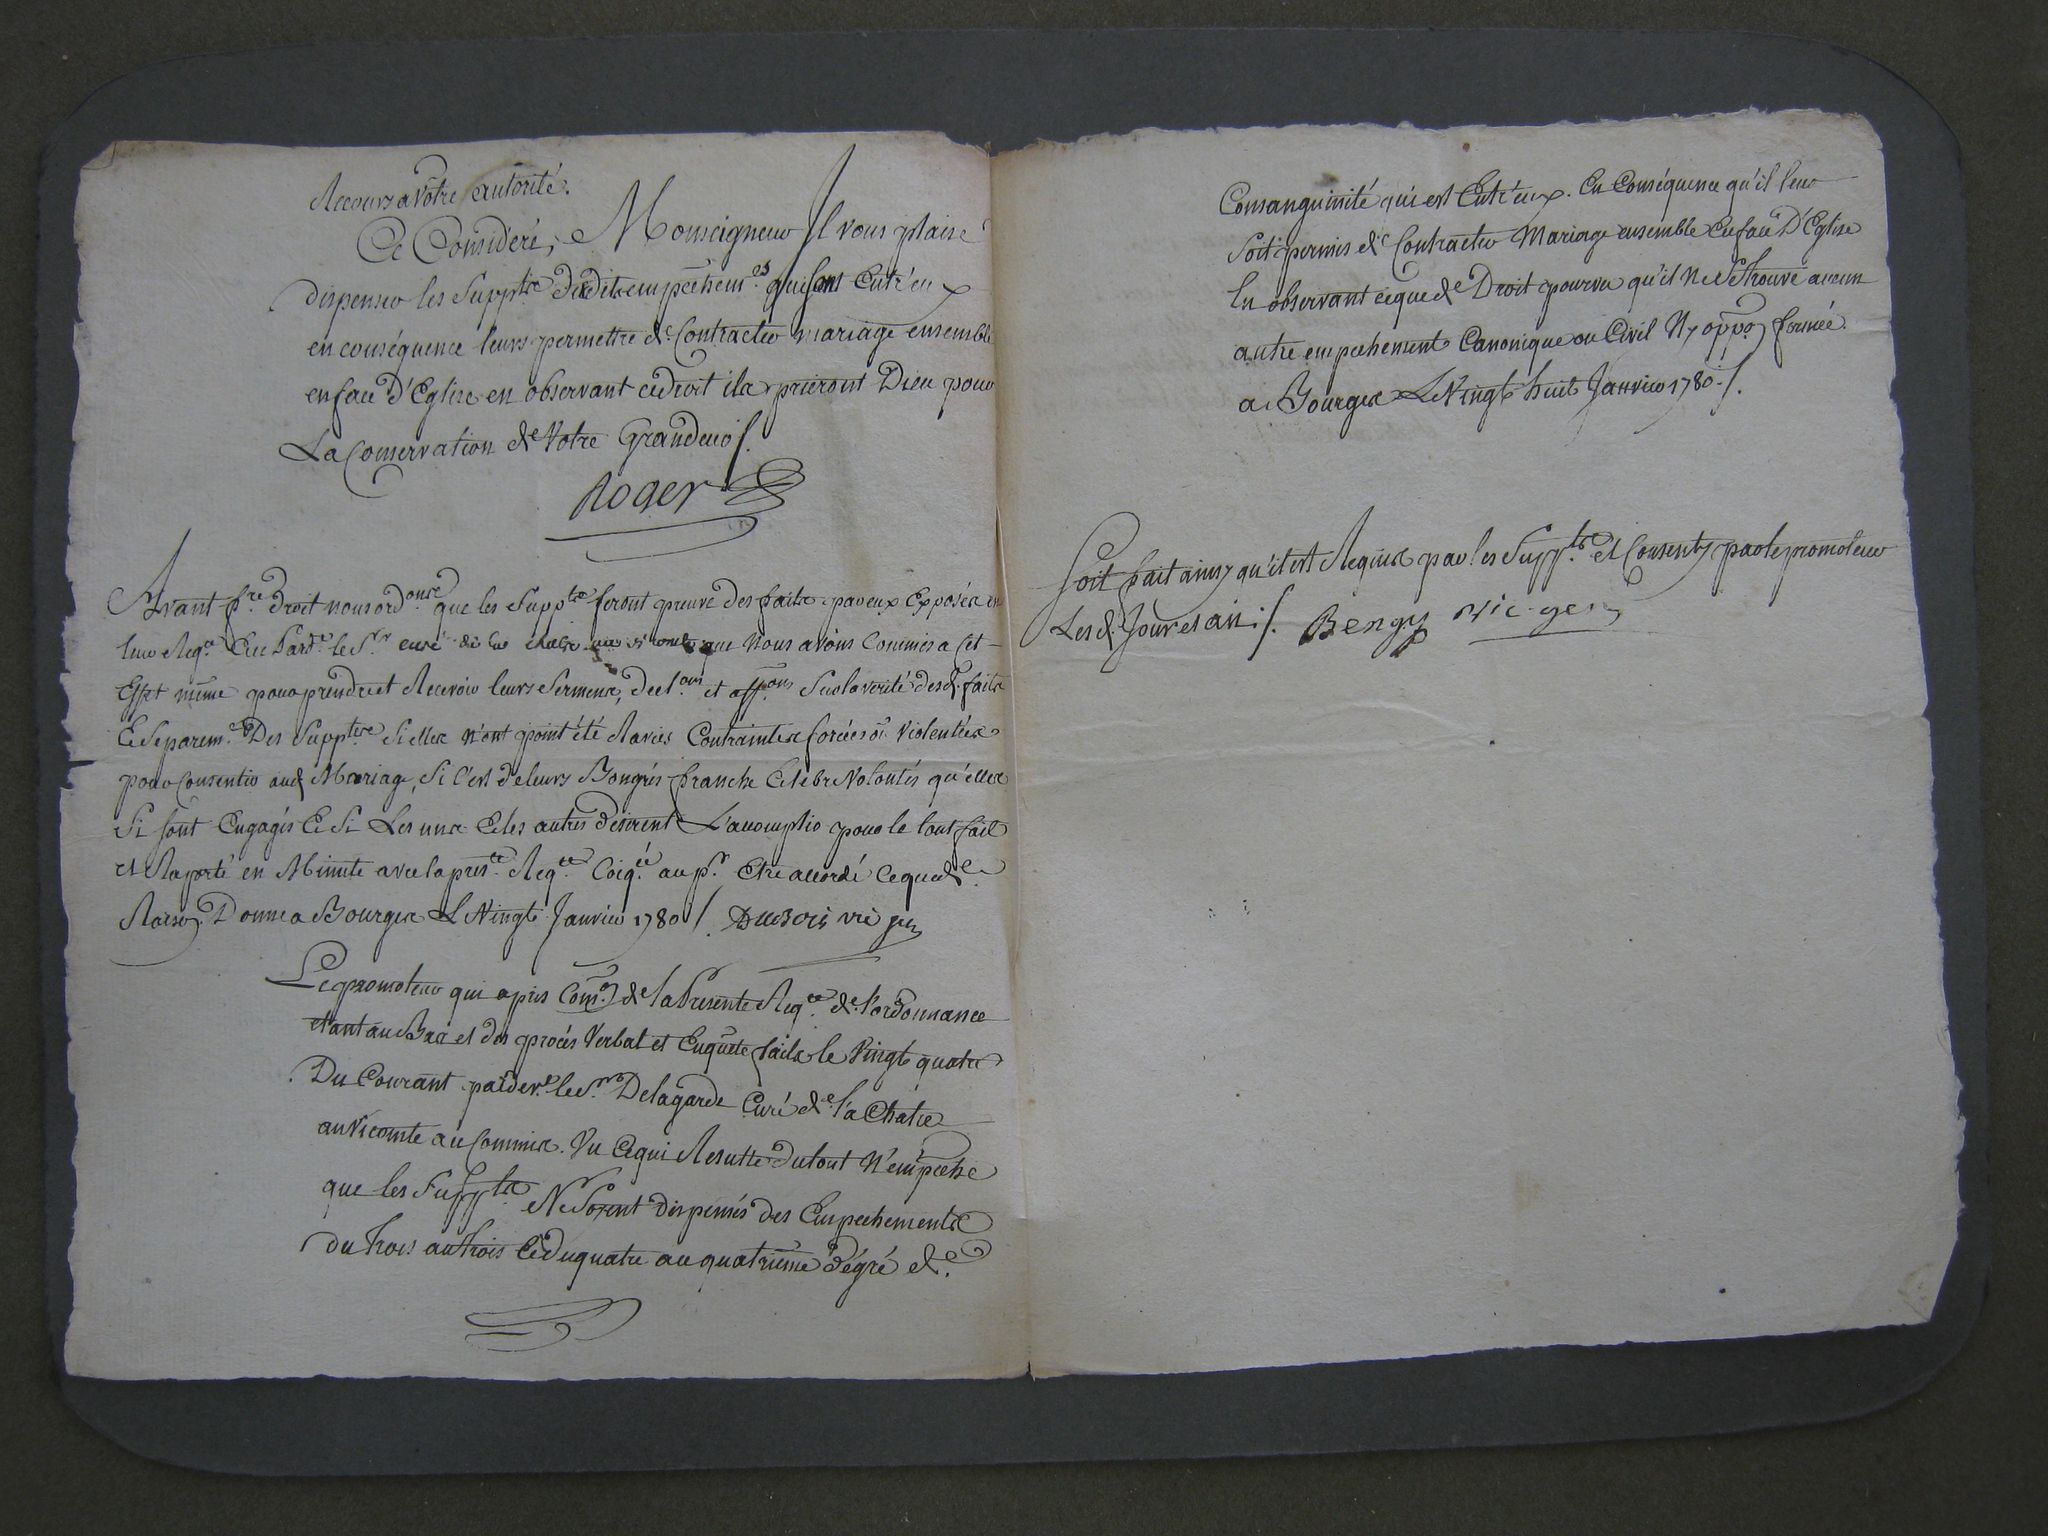 Recours a Votre autorité.
Ce Considéré, Monseigneur Il vous plaise
dispenser les Suppts desdits empêchemts qui sont Entr'eux
en conséquence leurs permettre de Contracter mariage ensemble
en face d'Eglise en observant ce droit ils prieront Dieu pour
La Conservation de Votre Grandeur /.
Roger
Avant fre droit nous ordonns que les Suppts feront preuve des faits par eux Exposés en
leur Reqte Pardt le Sr curé de la chatre au vicomte que Nous avons Commis a Cet
Effet même pour prendre et Recevoir leurs Serments, declons et affons Sur la verité desd. faits
Et Separemt Des Supptes Si elles n'ont point été Ravies Contraintes forcées ou Violentées
pour Consentir aud Mariage, Si C'est de leurs Bongrés franche Et libre Volontés qu'elles
Si sont Engagés Et Si Les uns Et les autres désirent L'accomplir pour le tout fait
et Raporté en Minute avec la preste Reqte Coiqée au pr Etre accordé Ce que de
Raison. Donné a Bourges Le Vingt Janvier 1780 /. DuBois vic gen
Le promoteur qui a pris Comon de la Presente Reqte de l'ordonnance
etant au Bas et des procés Verbal et Enquête faits le Vingt quatre
Du Courant pardevt le Sr Delagarde Curé de la Chatre
au Vicomte au Commis. Vu Ce qui Resulte du tout N'empeche
que les Suppts Ne Soient dispensés des Empechements
du trois au trois Et Du quatre au quatrième dégré de
Consanguinité qui est Entr'eux. En Conséquence qu'il leur
Soit permis de Contracter Mariage ensemble En face D'Eglise
En observant ce que de Droit pourvu qu'il Ne Se trouve aucun
autre empechement Canonique ou Civil Ny oppon formée.
a Bourges Le Vingt huit Janvier 1780 /.
Soit fait ainsy qu'il est Requis par les Suppts et Consenty par le promoteur
Les d. Jour et an /. Bengy vic-gen